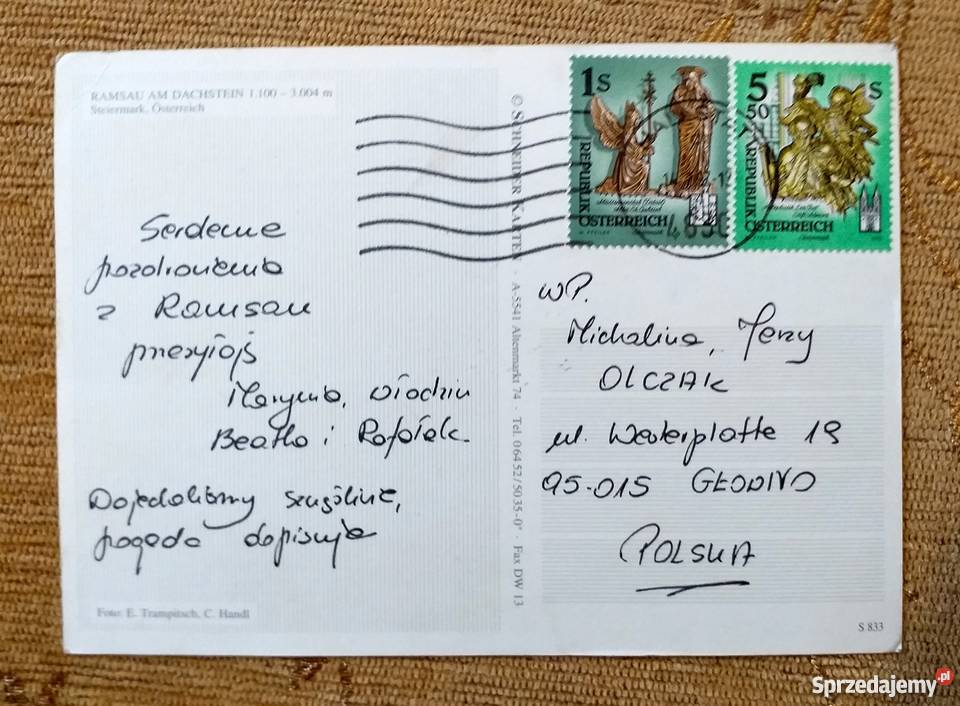 RAMSAU AM DACHSTEIN 1.100 – 3.004 m
Steiermark, Österreich
Serdeczne
pozdrowienia
z Ramsau
przesyłają
Marynia, Włodzia
Beatka i Rafałek
Dojechaliśmy szczęśliwie,
pogoda dopisuje
Foto: E. Trampitsch, C. Handl
© SCHNEIDER KARTEN · A-5541 Altenmarkt 74 · Tel. 06452/5035-0* · Fax DW 13
1 S
REPUBLIK
ÖSTERREICH
5 50 S
REPUBLIK
ÖSTERREICH
WP.
Michalina, Jerzy
OLCZAK
ul. Westerplatte 19
95-015 GŁOWNO
POLSKA
S 833
Sprzedajemy.pl